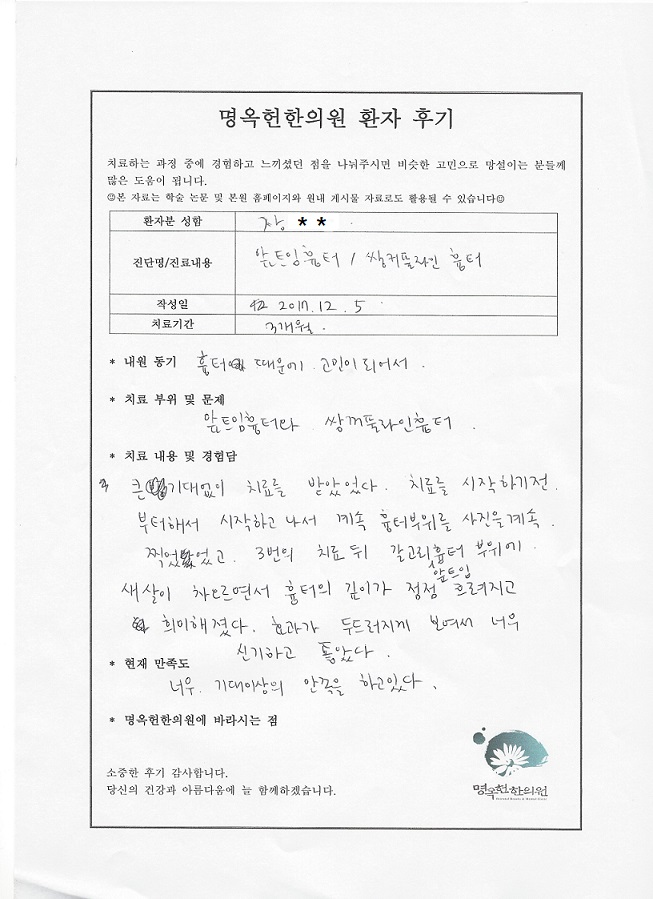 명옥헌한의원 환자 후기
치료하는 과정 중에 경험하고 느끼셨던 점을 나눠주시면 비슷한 고민으로 망설이는 분들께
많은 도움이 됩니다.
☺본 자료는 학술 논문 및 본원 홈페이지와 원내 게시물 자료로도 활용될 수 있습니다☺
환자분 성함 장 * *
진단명/진료내용 앞트임흉터 / 쌍커풀라인 흉터
작성일 2017. 12. 5
치료기간 3개월.
* 내원 동기 흉터 때문에. 고민이되어서.
* 치료 부위 및 문제
앞트임흉터와 쌍꺼풀라인흉터.
* 치료 내용 및 경험담
큰 기대없이 치료를 받았었다. 치료를 시작하기전.
부터해서 시작하고 나서 계속 흉터부위를 사진을계속.
찍었었고. 3번의 치료 뒤 갈고리흉터 부위에.
앞트임
새살이 차오르면서 흉터의 깊이가 점점 흐려지고
희미해졌다. 효과가 두드러지게 보여서 너무
신기하고 좋았다.
* 현재 만족도
너무. 기대이상의 만족을 하고있다.
* 명옥헌한의원에 바라시는 점
소중한 후기 감사합니다.
당신의 건강과 아름다움에 늘 함께하겠습니다.
명옥헌한의원